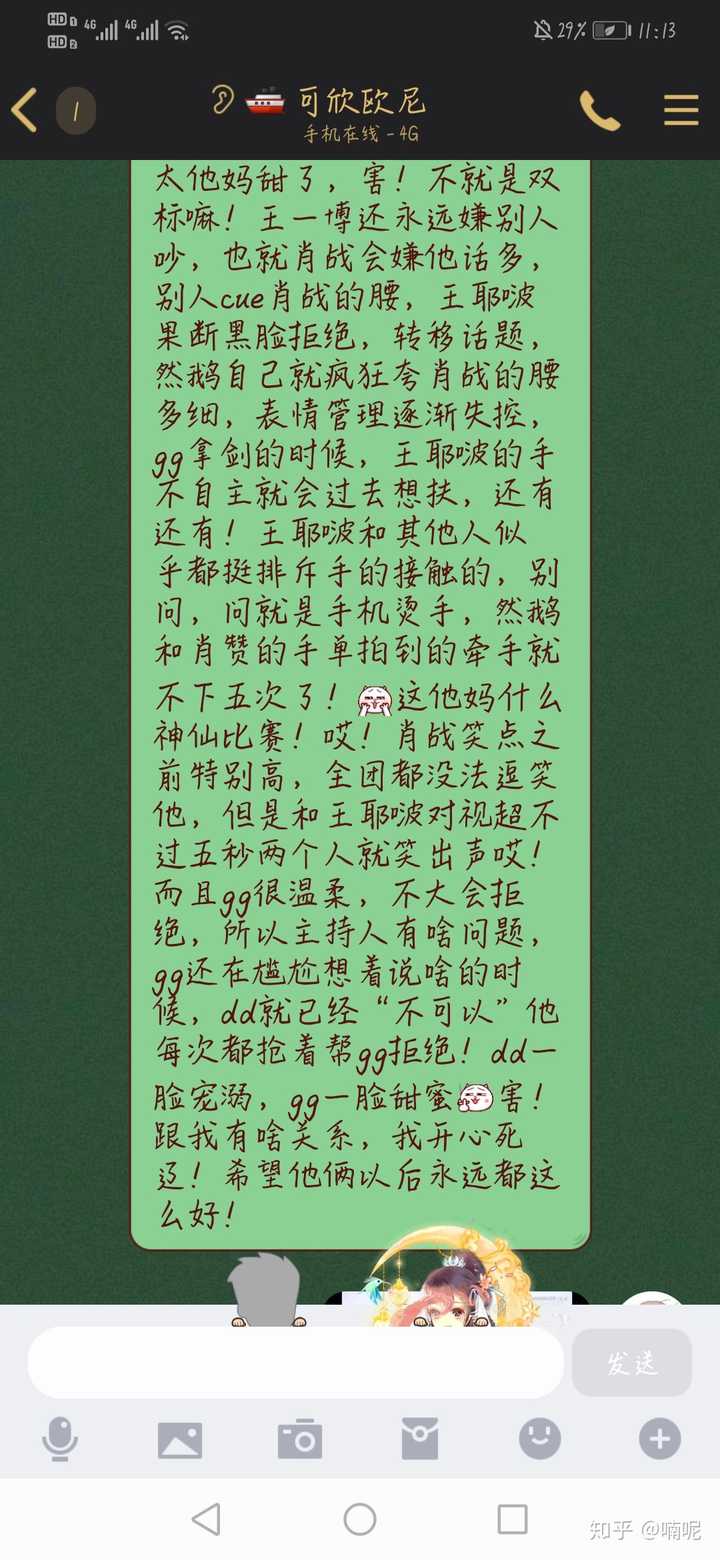 HD 1 4G 4G 29% 11:13
HD 2
1 可欣欧尼
手机在线 - 4G
太他妈甜了，害！不就是双
标嘛！王一博还永远嫌别人
吵，也就肖战会嫌他话多，
别人cue肖战的腰，王耶啵
果断黑脸拒绝，转移话题，
然鹅自己就疯狂夸肖战的腰
多细，表情管理逐渐失控，
gg拿剑的时候，王耶啵的手
不自主就会过去想扶，还有
还有！王耶啵和其他人似
乎都挺排斥手的接触的，别
问，问就是手机烫手，然鹅
和肖赞的手单拍到的牵手就
不下五次了！这他妈什么
神仙比赛！哎！肖战笑点之
前特别高，全团都没法逗笑
他，但是和王耶啵对视超不
过五秒两个人就笑出声哎！
而且gg很温柔，不大会拒
绝，所以主持人有啥问题，
gg还在尴尬想着说啥的时
候，dd就已经“不可以”他
每次都抢着帮gg拒绝！dd一
脸宠溺，gg一脸甜蜜害！
跟我有啥关系，我开心死
辽！希望他俩以后永远都这
么好！
发送
知乎 @喃呢